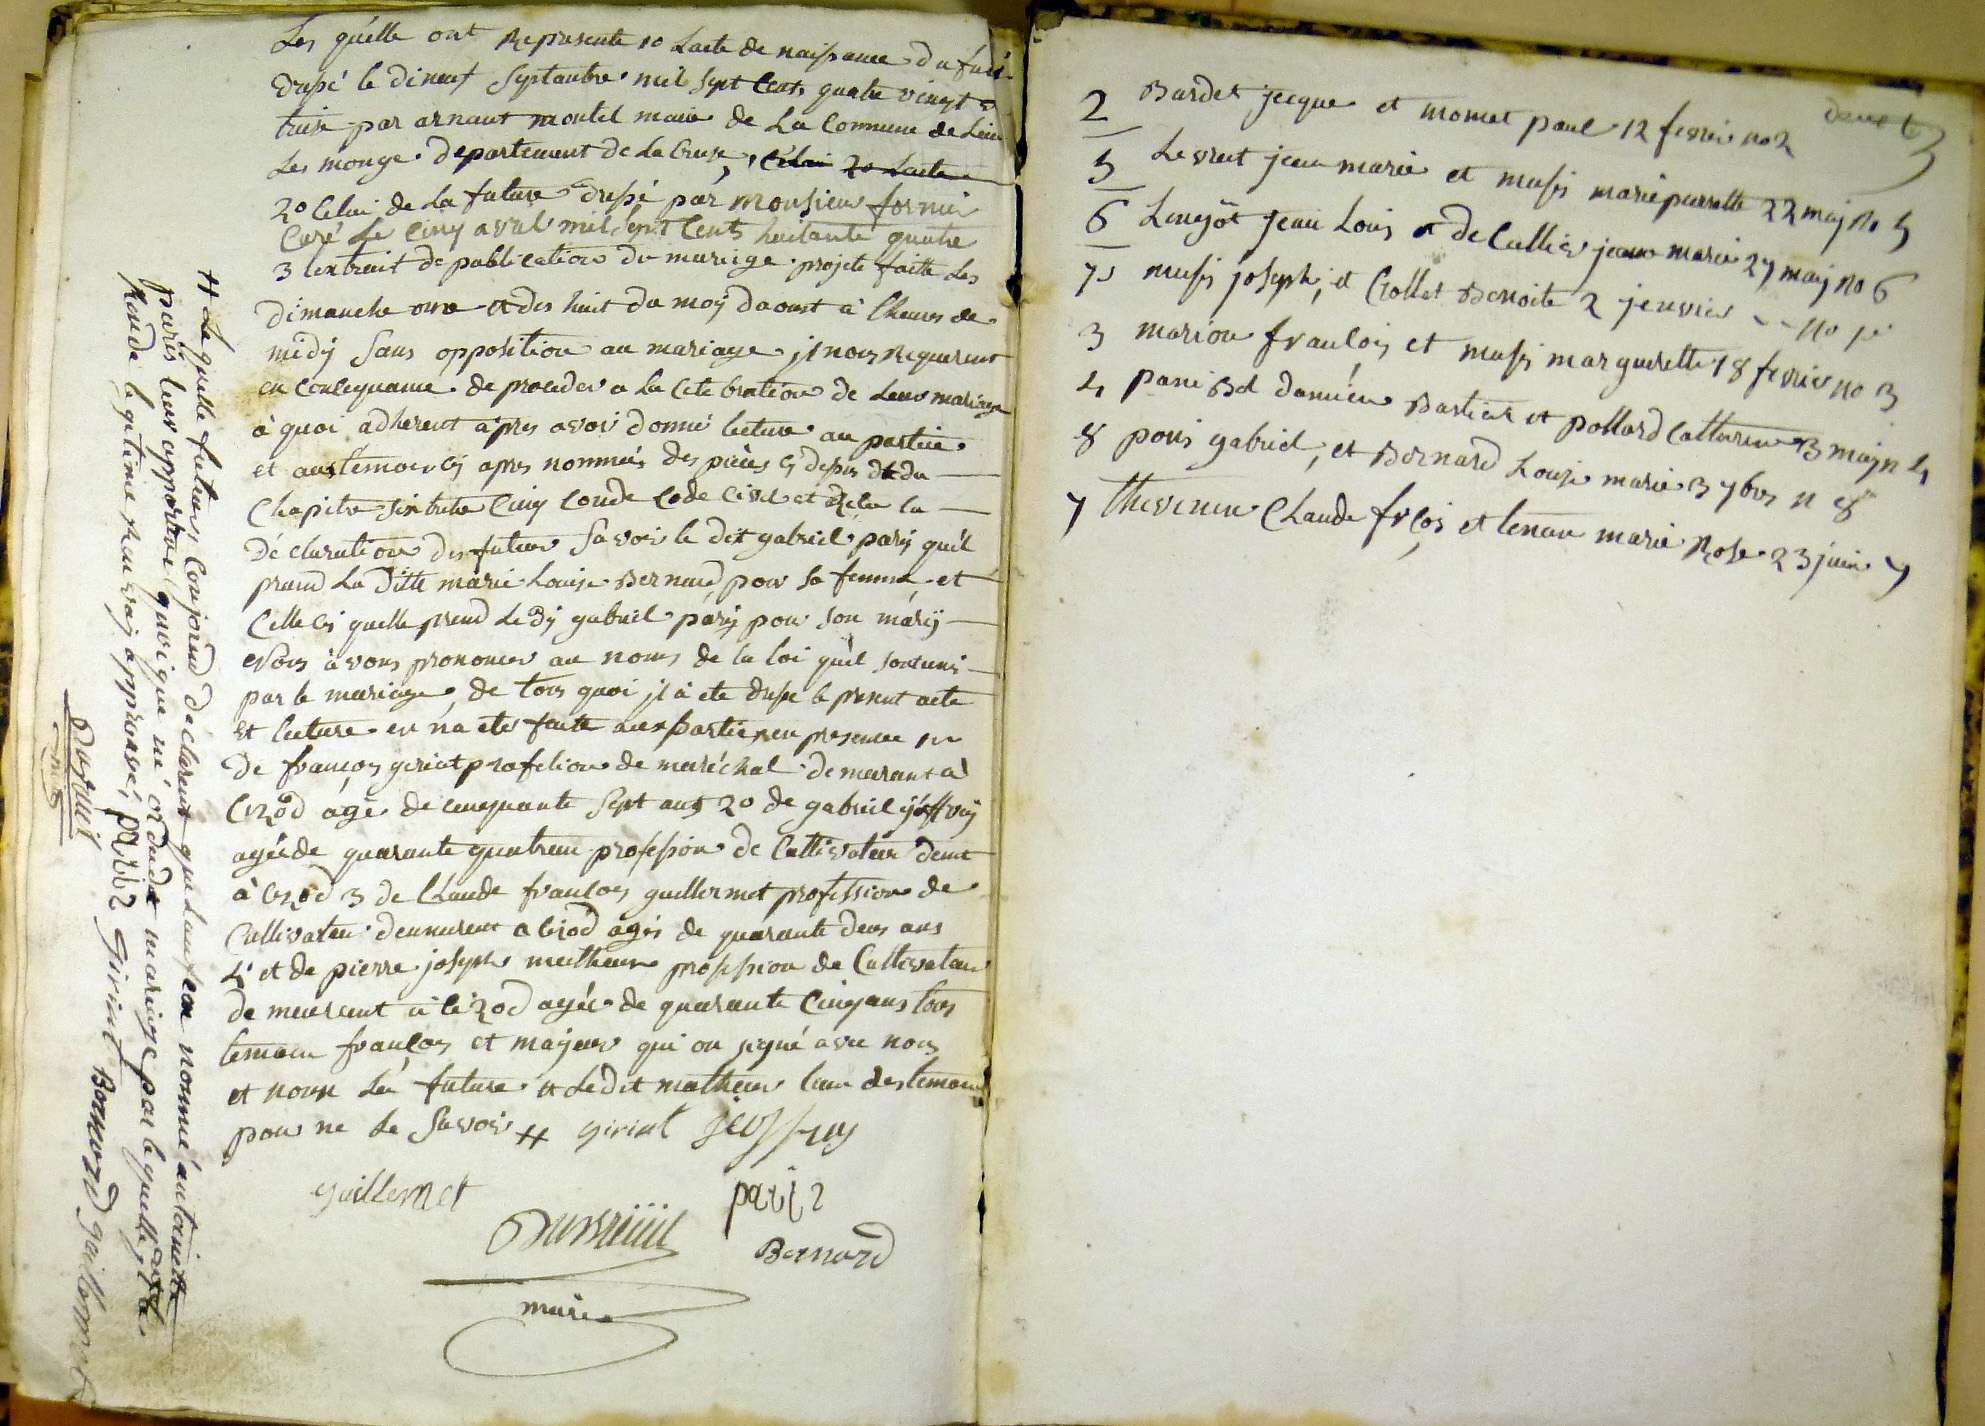 Les quelle ont Represente 10 Lacte de naissance du futu
drésé le dineuf Septanbre mil sept Cents quatre vingt
treise par arnaut montel maire de La Commune de
Les monge departement de La Creuse, Celui 20 Lacte
2o Celui de La future dressé par monsieur fornier
Curé Le Cinq avril mil sept Cents huitante quatre
3 lextrait de publication du mariage projete faitte Les
dimanche onze et dis huit du moy daoust à lheures de
midÿ Sans opposition au mariage jl nous Requerent
en Consequance de proceder a La Celebration de Leur mariage
à quoi adherent apres avoir donné lecture au partie
et aux temoin Cÿ apres nommés des pièces Cÿ desus et du
Chapitre six titre Cinq Code Civil et Relu la
déclaration des futur Savoir le dit gabriel paris quil
prend La ditte marie Louise Bernard pour sa femme et
Celle Cÿ quelle prend Le dÿ gabriel paris pour son mariÿ
Nous avons prononcer au noms de la loi quil sont uni
par le mariage, de tous quoi jl à ete dressé le present acte
et lecture en na ete faitte aux parties en presence
de françois giriat profession de maréchal demeurant a
Cizod age de cinquante Sept ans 2o de gabriel jeoffray
agée de quarante quatre profession de Cultivateur demt
à Cizod 3 de Claude françois guillermet profession de
Cultivateur demeurent a Cizod agés de quarante deux ans
4 et de pierre joseph mathieu profession de Cultivateur
de meurant à Cizod agée de quarante Cinq ans tous
temoin françois et majeur qui on signé avec nous
et nonn La future et Le dit mathieu lun des temoin
pour ne Le Savoir # giriat jeoffray
guillermet paris
Dubreüil Bernard
maire
# Le quelle futurs Conjoind déclarent que Lenfean nommé antoinette
paris leur appartien quoique né avant du dit mariage par le quelle
Rende legitime Renvoÿ approuvé, paris giriat Bernard guillermet
Dubreuil
maire
2 Bardet jacque et momet paul 12 fevrier no 2
5 Levrat jean marie et mussi marie pierrette 22 maÿ No 5
6 Longöt jean Louis et de Callies jeanne marie 27 maÿ no 6
mussi joseph, et Crollet Benoite 2 jenvier no 1er
3 marion françois et mussi marguerette 18 fevrier no 3
4 Damien Bastien et pollard Catterine 3 maÿ n 4
8 paris gabriel, et Bernard Louise marie 3 7bre n 8
7 thevenin Claude frçois et tenan marie Rose 23 juin 7